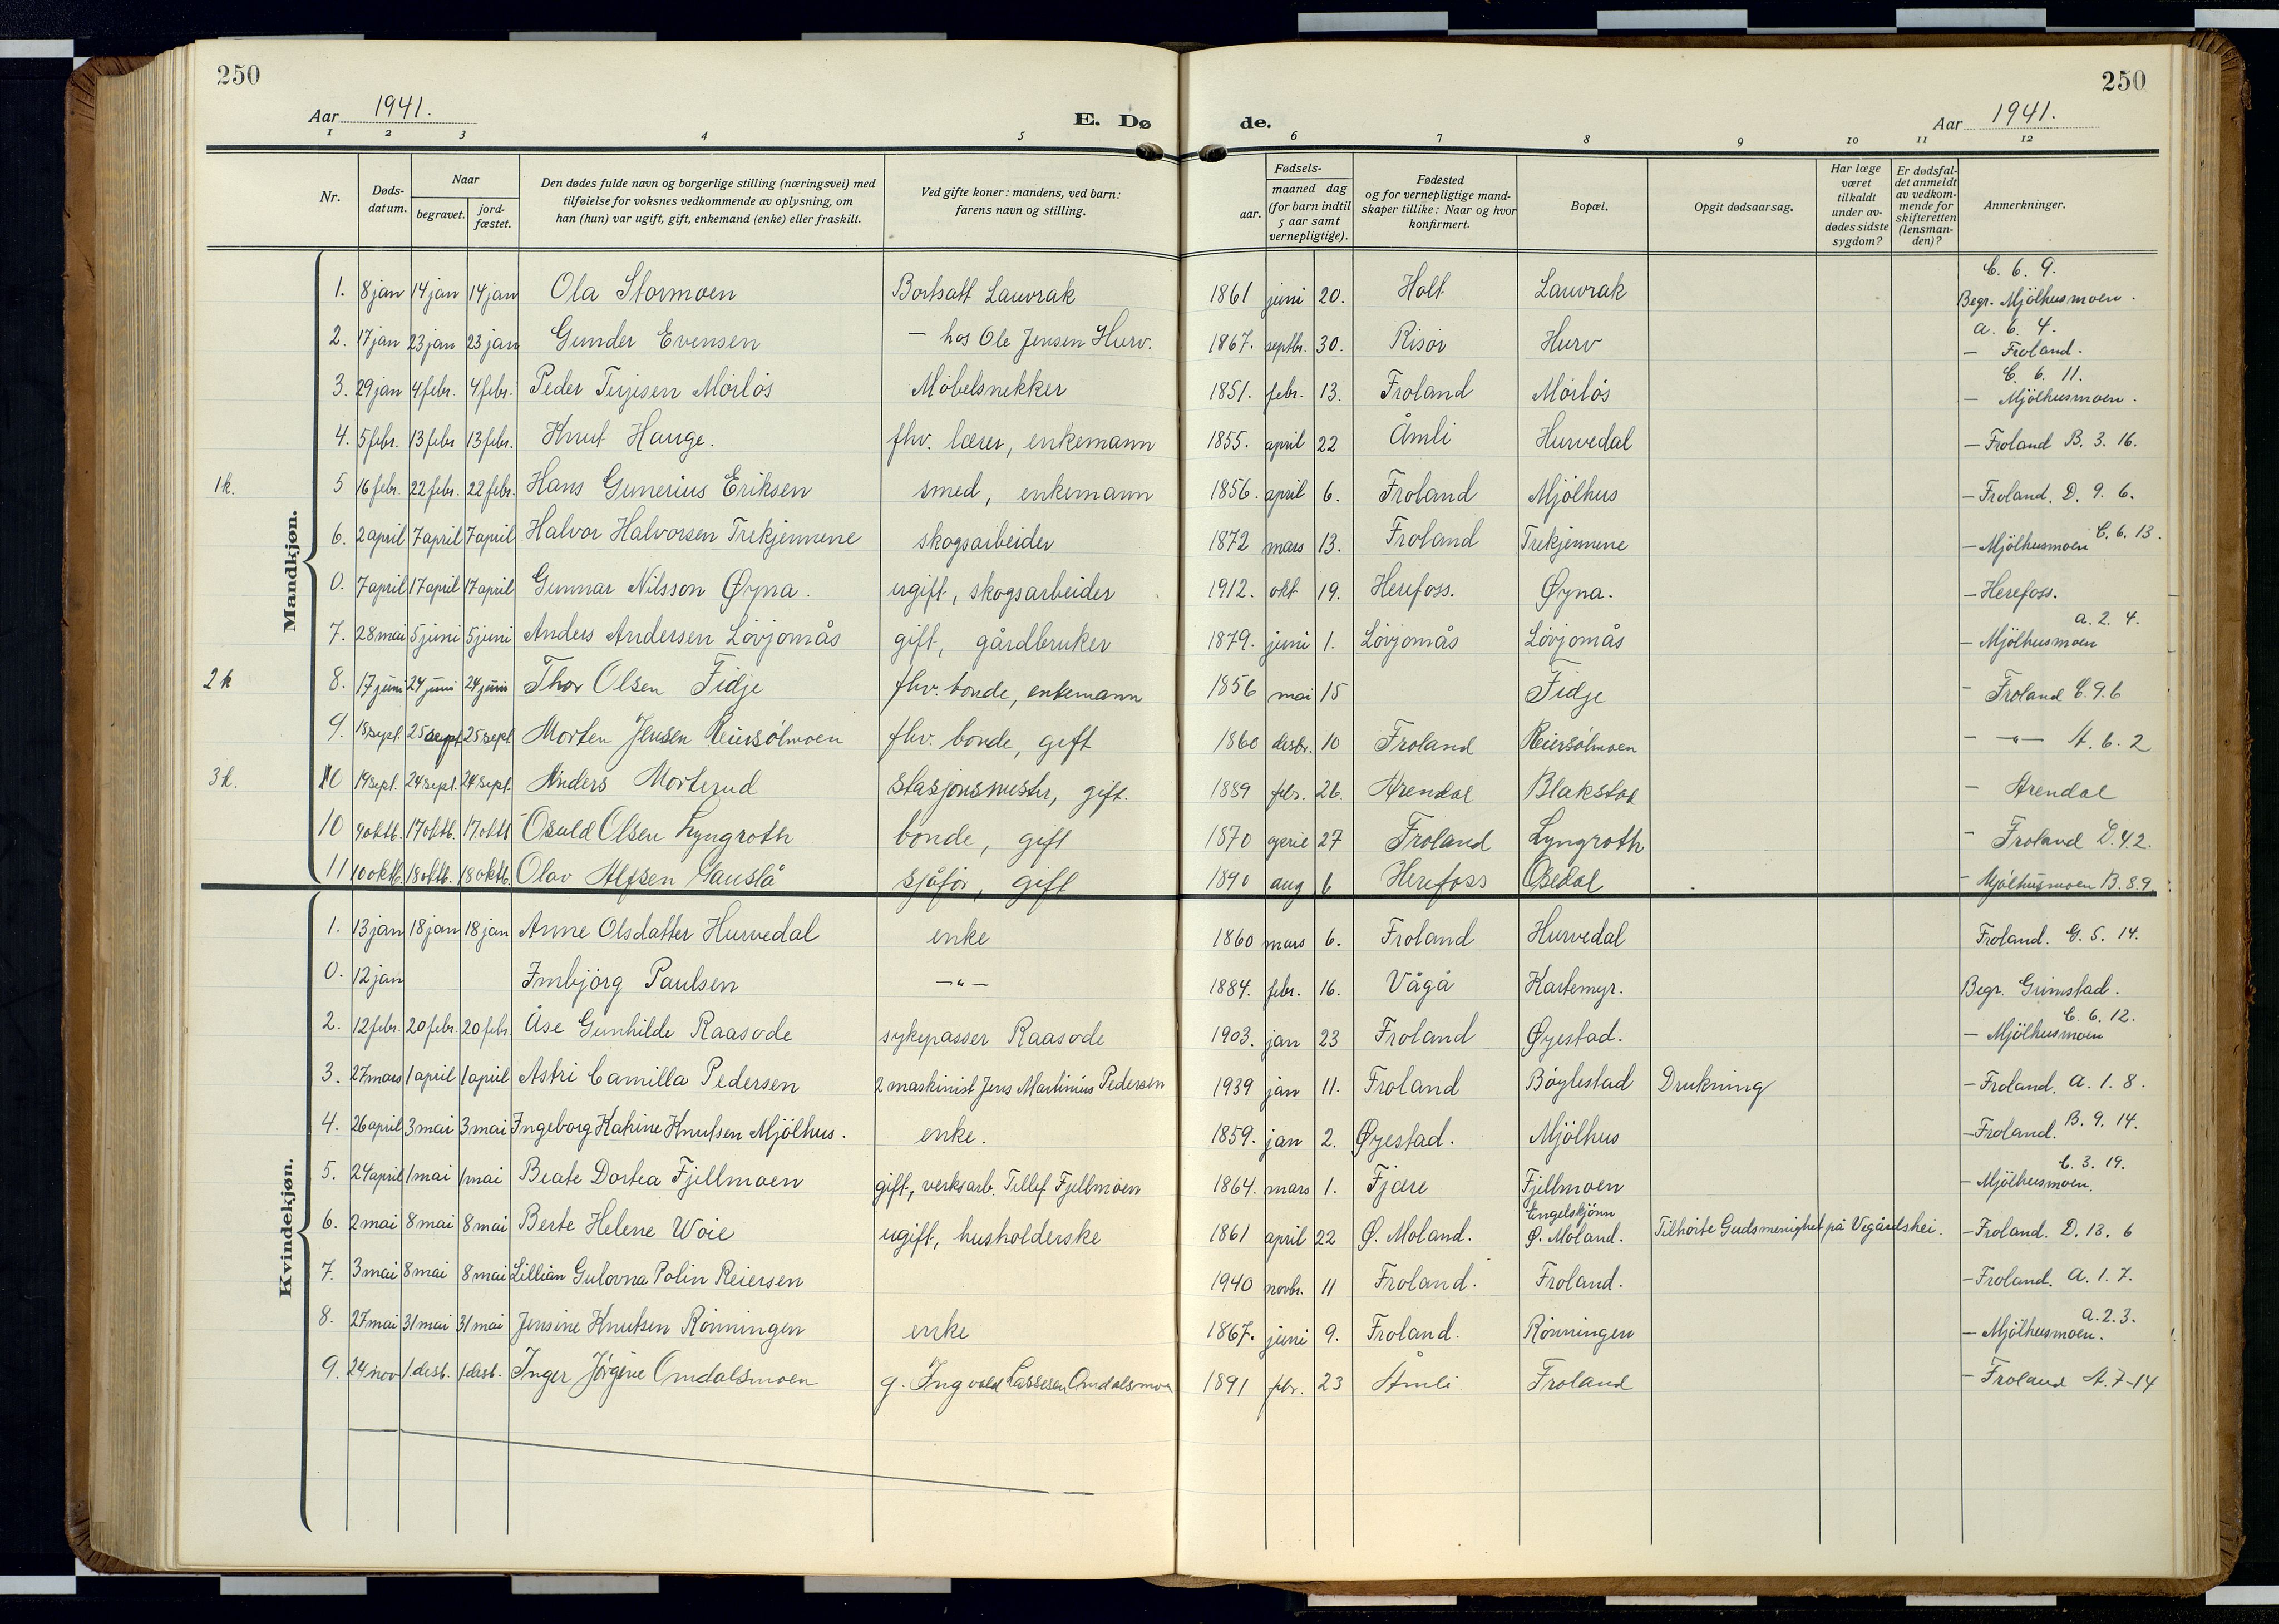 250
250
Aar 1941.
E. Dø
de.
Aar 1941.
1 2 3 4 5 6 7 8 9 10 11 12
Nr.
Døds-datum.
Naar
begravet.
jord-fæstet.
Den dødes fulde navn og borgerlige stilling (næringsvei) med
tilføielse for voksnes vedkommende av oplysning, om
han (hun) var ugift, gift, enkemand (enke) eller fraskilt.
Ved gifte koner: mandens, ved barn:
farens navn og stilling.
Fødsels-
aar.
maaned dag
(for barn indtil
5 aar samt
vernepligtige).
Fødested
og for vernepligtige mand-
skaper tillike: Naar og hvor
konfirmert.
Bopæl.
Opgit dødsaarsag.
Har læge
været
tilkaldt
under av-
dødes sidste
sygdom?
Er dødsfal-
det anmeldt
av vedkom-
mende for
skifteretten
(lensman-
den)?
Anmerkninger.
Mandkjøn.
1. 8 jan 14 jan 14 jan Ola Stormoen Bortsatt Lauvrak 1861 juni 20. Holt Lauvrak C. 6. 9. Begr. Mjölhusmoen.
2. 17 jan 23 jan 23 jan Gunder Evensen — hos Ole Jensen Hurv. 1867. septbr. 30. Risör Hurv a. 6. 4. — Froland.
3. 29 jan 4 febr. 4 febr. Peder Terjesen Mörlös Möbelsnekker 1851. febr. 13. Froland Mörlös C. 6. 11. — Mjölhusmoen.
4. 5 febr. 13 febr 13 febr. Knut Hauge. fhv. lærer, enkemann 1855. april 22 Åmli Hurvedal — Froland B. 3. 16.
1k. 5 16 febr. 22 febr. 22 febr. Hans Gunerius Eriksen smed, enkemann 1856. april 6. Froland Mjölhus — Froland. D. 9. 6.
6. 2 april 7 april 7 april Halvor Halvorsen Trekjennene skogsarbeider 1872 mars 13. Froland Trekjennene — Mjölhusmoen C. 6. 13.
0. 7 april 17 april 17 april Gunnar Nilsson Øyna. ugift, skogsarbeider 1912. okt 19. Herefoss. Øyna. — Herefoss.
7. 28 mai 5 juni 5 juni Anders Andersen Lövjomås gift, gårdbruker 1879. juni 1. Lövjomås Lövjomås a. 2. 4. — Mjölhusmoen
2 k 8. 17 juni 24 juni 24 juni Thor Olsen Fidje fhv. bonde, enkemann 1856 mai 15 Fidje — Froland C. 9. 6
9. 18 sept. 25 sept 25 sept Morten Jensen Reiersölmoen fhv. bonde, gift 1860 desbr. 10 Froland Reiersölmoen — — " — A. 6. 2
3 k. 0 19 sept. 24 sept. 24 sept. Anders Morterud stasjonsmester, gift. 1889 febr. 26. Arendal Blakstad — Arendal
10 9 oktb. 17 oktb. 17 oktb Osuld Olsen Lyngroth bonde, gift 1870 27 Froland Lyngroth — Froland D. 4. 2.
11 10 oktb. 18 oktb. 18 oktb. Olav Alfsen Hauslå sjåför, gift 1890 aug 6 Herefoss Osedal — Mjölhusmoen B. 8. 9
Kvindekjøn.
1. 13 jan 18 jan 18 jan Anne Olsdatter Hurvedal enke 1860 mars 6. Froland Hurvedal Froland. G. 5. 14.
0. 12 jan Imbjörg Paulsen — " — 1884. febr. 16. Vågå Kartemyr. Begr. Grimstad.
2. 12 febr. 20 febr. 20 febr. Åse Gunhilde Raasode sykepasser Raasode 1903. jan 23 Froland Øyestad. C. 6. 12. — Mjölhusmoen
3. 27 mars 1 april 1 april Astri Camilla Pedersen 2 maskinist Jens Martinius Pedersen 1939 jan 11. Froland Böylestad Drukning — Froland. a. 1. 8.
4. 26 april 3 mai 3 mai Ingeborg Katrine Knutsen Mjölhus. enke. 1859. jan 2. Øyestad. Mjölhus — Froland. B. 9. 14.
5. 24 april 1 mai 1 mai Beate Dortea Fjellmoen gift, verksarb. Tellef Fjellmoen 1864. mars 1. Fjære Fjellmoen C. 3. 19. — Mjölhusmoen.
6. 2 mai 8 mai 8 mai Berte Helene Woie ugift, husholderske 1861 april 22 Ø. Moland. Engelskjönn Ø. Moland. Tilhörte Gudsmenighet på Vegårdshei. — Froland. D. 13. 6
7. 3 mai 8 mai 8 mai Lillian Gulovna Polin Reiersen 1940 novbr. 11 Froland. Froland. — Froland. a. 1. 7.
8. 27 mai 31 mai 31 mai Jensine Knutsen Rönningen enke 1867. juni 9. Froland. Rönningen a. 2. 3. — Mjölhusmoen.
9. 24 nov 1. desb. 1 desb. Inger Jörgine Omdalsmoen g. Ingvald Lassesen Omdalsmoen 1891 febr. 23 Åmli Froland — Froland A. 7-14